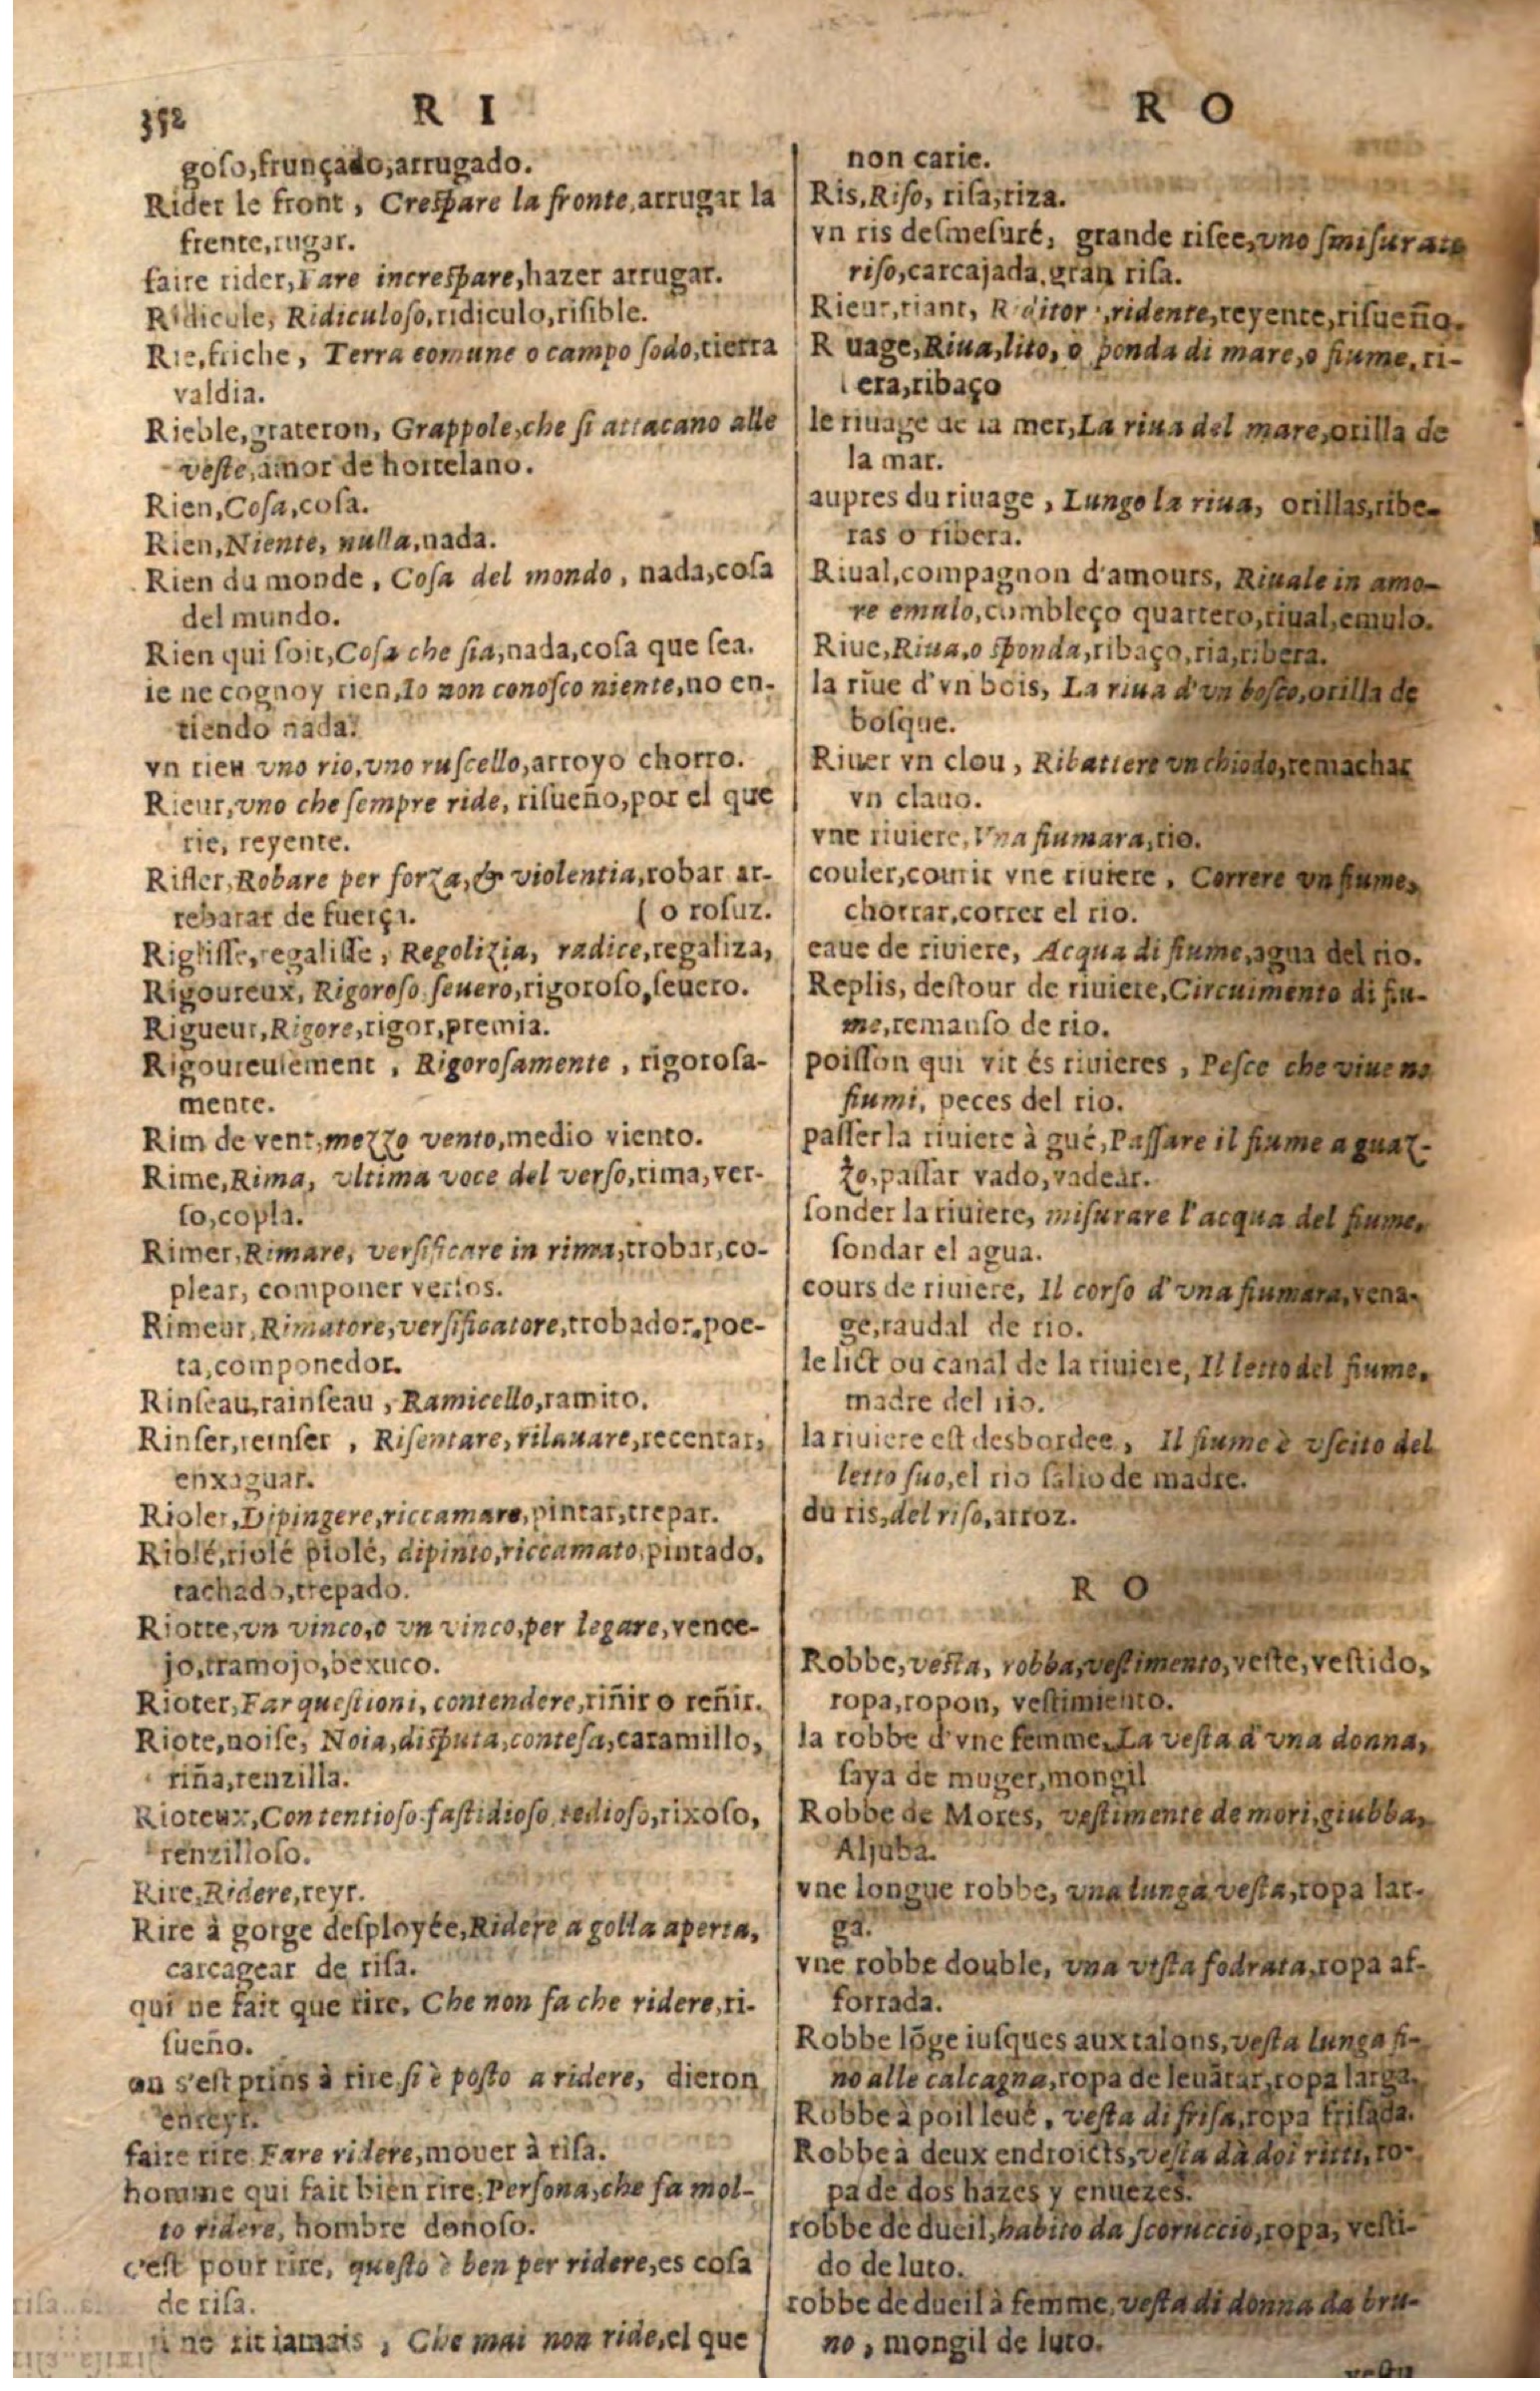 352
R I
goſo,frunçado,arrugado.
Rider le front, Creſpare la fronte,arrugar la
frente,rugar.
faire rider,Fare increſpare,hazer arrugar.
Ridicule, Ridiculoſo,ridiculo,riſible.
Rie,friche, Terra comune o campo ſodo,tierra
valdia.
Rieble,grateron, Grappole,che ſi attacano alle
veſte,amor de hortelano.
Rien,Coſa,coſa.
Rien,Niente, nulla,nada.
Rien du monde, Coſa del mondo, nada,coſa
del mundo.
Rien qui ſoit,Coſa che ſia,nada,coſa que ſea.
ie ne cognoy rien,Io non conoſco niente,no en-
tiendo nada.
vn rieu vno rio,vno ruſcello,arroyo chorro.
Rieur,vno che ſempre ride, riſueño,por el que
rie, reyente.
Rifler,Robare per forza,& violentia,robar ar-
rebatar de fuerça. ( o roſuz.
Riglisſe,regalisſe, Regolizia, radice,regaliza,
Rigoureux, Rigoroſo ſeuero,rigoroſo,ſeuero.
Rigueur,Rigore,rigor,premia.
Rigoureuſement, Rigoroſamente, rigoroſa-
mente.
Rim de vent,mezzo vento,medio viento.
Rime,Rima, vltima voce del verſo,rima,ver-
ſo,copla.
Rimer,Rimare, verſificare in rima,trobar,co-
plear, componer verſos.
Rimeur,Rimatore,verſificatore,trobador,poe-
ta,componedor.
Rinſeau,rainſeau, Ramicello,ramito.
Rinſer,reinſer, Riſentare,rilauare,recentar,
enxaguar.
Rioler,Dipingere,riccamare,pintar,trepar.
Riolé,riolé piolé, dipinto,riccamato,pintado,
tachado,trepado.
Riotte,vn vinco,o vn vinco,per legare,vence-
jo,tramojo,bexuco.
Rioter,Far queſtioni,contendere,riñir o reñir.
Riote,noiſe, Noia,diſputa,conteſa,caramillo,
riña,renzilla.
Rioteux,Contentioſo faſtidioſo tedioſo,rixoſo,
renzilloſo.
Rire,Ridere,reyr.
Rire à gorge deſployée,Ridere a golla aperta,
carcagear de riſa.
qui ne fait que rire, Che non fa che ridere,ri-
ſueño.
on s'eſt prins à rire ſi è poſto a ridere, dieron
en reyr.
faire rire Fare ridere,mouer à riſa.
homme qui fait bien rire,Perſona,che fa mol-
to ridere, hombre doñoſo.
c'eſt pour rire, queſto è ben per ridere,es coſa
de riſa.
ne rit iamais, Che mai non ride,el que
R O
non carie.
Ris,Riſo, riſa,riza.
vn ris deſmeſuré, grande riſee,vno ſmiſurato
riſo,carcajada,gran riſa.
Rieur,riant, Riditor,ridente,reyente,riſueño.
R uage,Riua,lito, o ponda di mare,o fiume, ri-
era,ribaço
le riuage de la mer,La riua del mare,orilla de
la mar.
aupres du riuage, Lungo la riua, orillas,ribe-
ras o ribera.
Riual,compagnon d'amours, Riuale in amo-
re emulo,combleço quartero,riual,emulo.
Riue,Riua,o ſponda,ribaço,ria,ribera.
la riue d'vn bois, La riua d'vn boſco,orilla de
boſque.
Riuer vn clou, Ribattere vn chiodo,remachar
vn clauo.
vne riuiere,Vna fiumara,rio.
couler,courir vne riuiere, Correre vn fiume,
chorrar,correr el rio.
eaue de riuiere, Acqua di fiume,agua del rio.
Replis, deſtour de riuiere,Circuimento di fiu-
me,remanſo de rio.
poiſſon qui vit és riuieres, Peſce che viue ne
fiumi, peces del rio.
paſſer la riuiere à gué,Paſſare il fiume a guaz-
zo,paſſar vado,vadear.
ſonder la riuiere, miſurare l'acqua del fiume,
ſondar el agua.
cours de riuiere, Il corſo d'vna fiumara,vena-
ge,raudal de rio.
le lict ou canal de la riuiere, Il letto del fiume,
madre del rio.
la riuiere eſt desbordee, Il fiume è vſcito del
letto ſuo,el rio ſalio de madre.
du ris,del riſo,arroz.
R O
Robbe,veſta, robba,veſtimento,veſte,veſtido,
ropa,ropon, veſtimiento.
la robbe d'vne femme,La veſta d'vna donna,
ſaya de muger,mongil
Robbe de Mores, veſtimente de mori,giubba,
Aljuba.
vne longue robbe, vna lunga veſta,ropa lar-
ga.
vne robbe double, vna veſta fodrata,ropa af-
forrada.
Robbe lõge iuſques aux talons,veſta lunga fi-
no alle calcagna,ropa de leuãtar,ropa larga.
Robbe à poil leué, veſta di friſa,ropa friſada.
Robbe à deux endroicts,veſta da doi ritti,ro-
pa de dos hazes y enuezes.
robbe de dueil,habito da ſcoruccio,ropa, veſti-
do de luto.
robbe de dueil à femme,veſta di donna da bru-
no, mongil de luto.